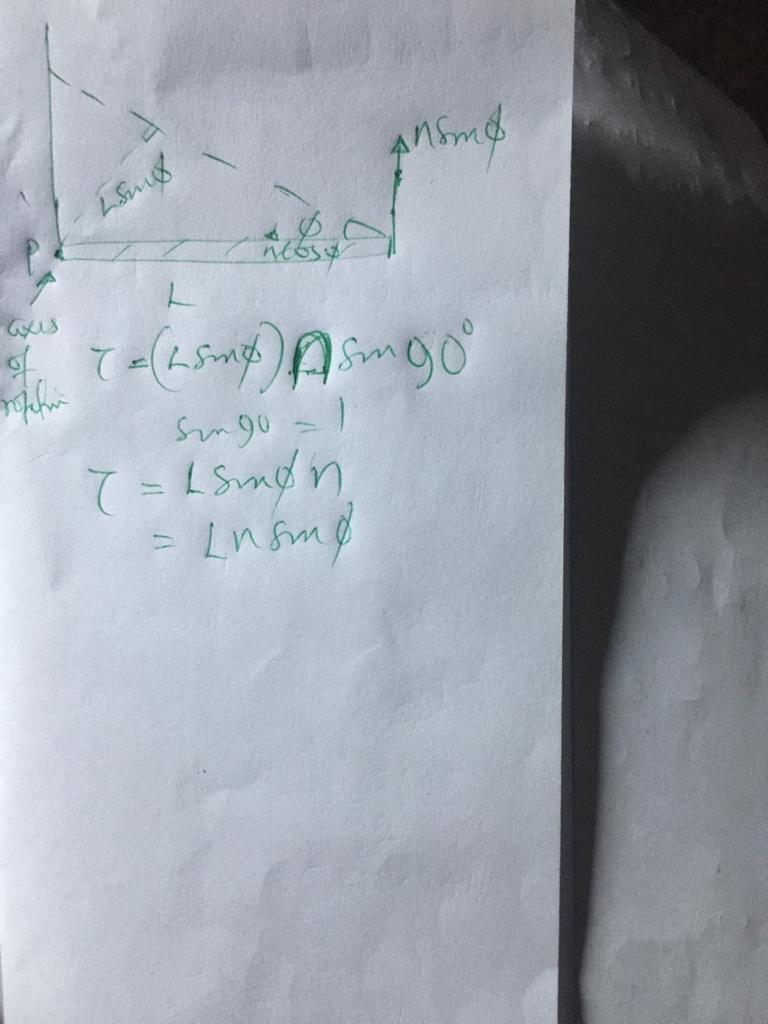 nsinϕ
Lsinϕ
ϕ
P
ncosϕ
L
axis
of
τ = (Lsinϕ) n sin 90°
sin 90 = 1
τ = Lsinϕ n
= Ln sinϕ